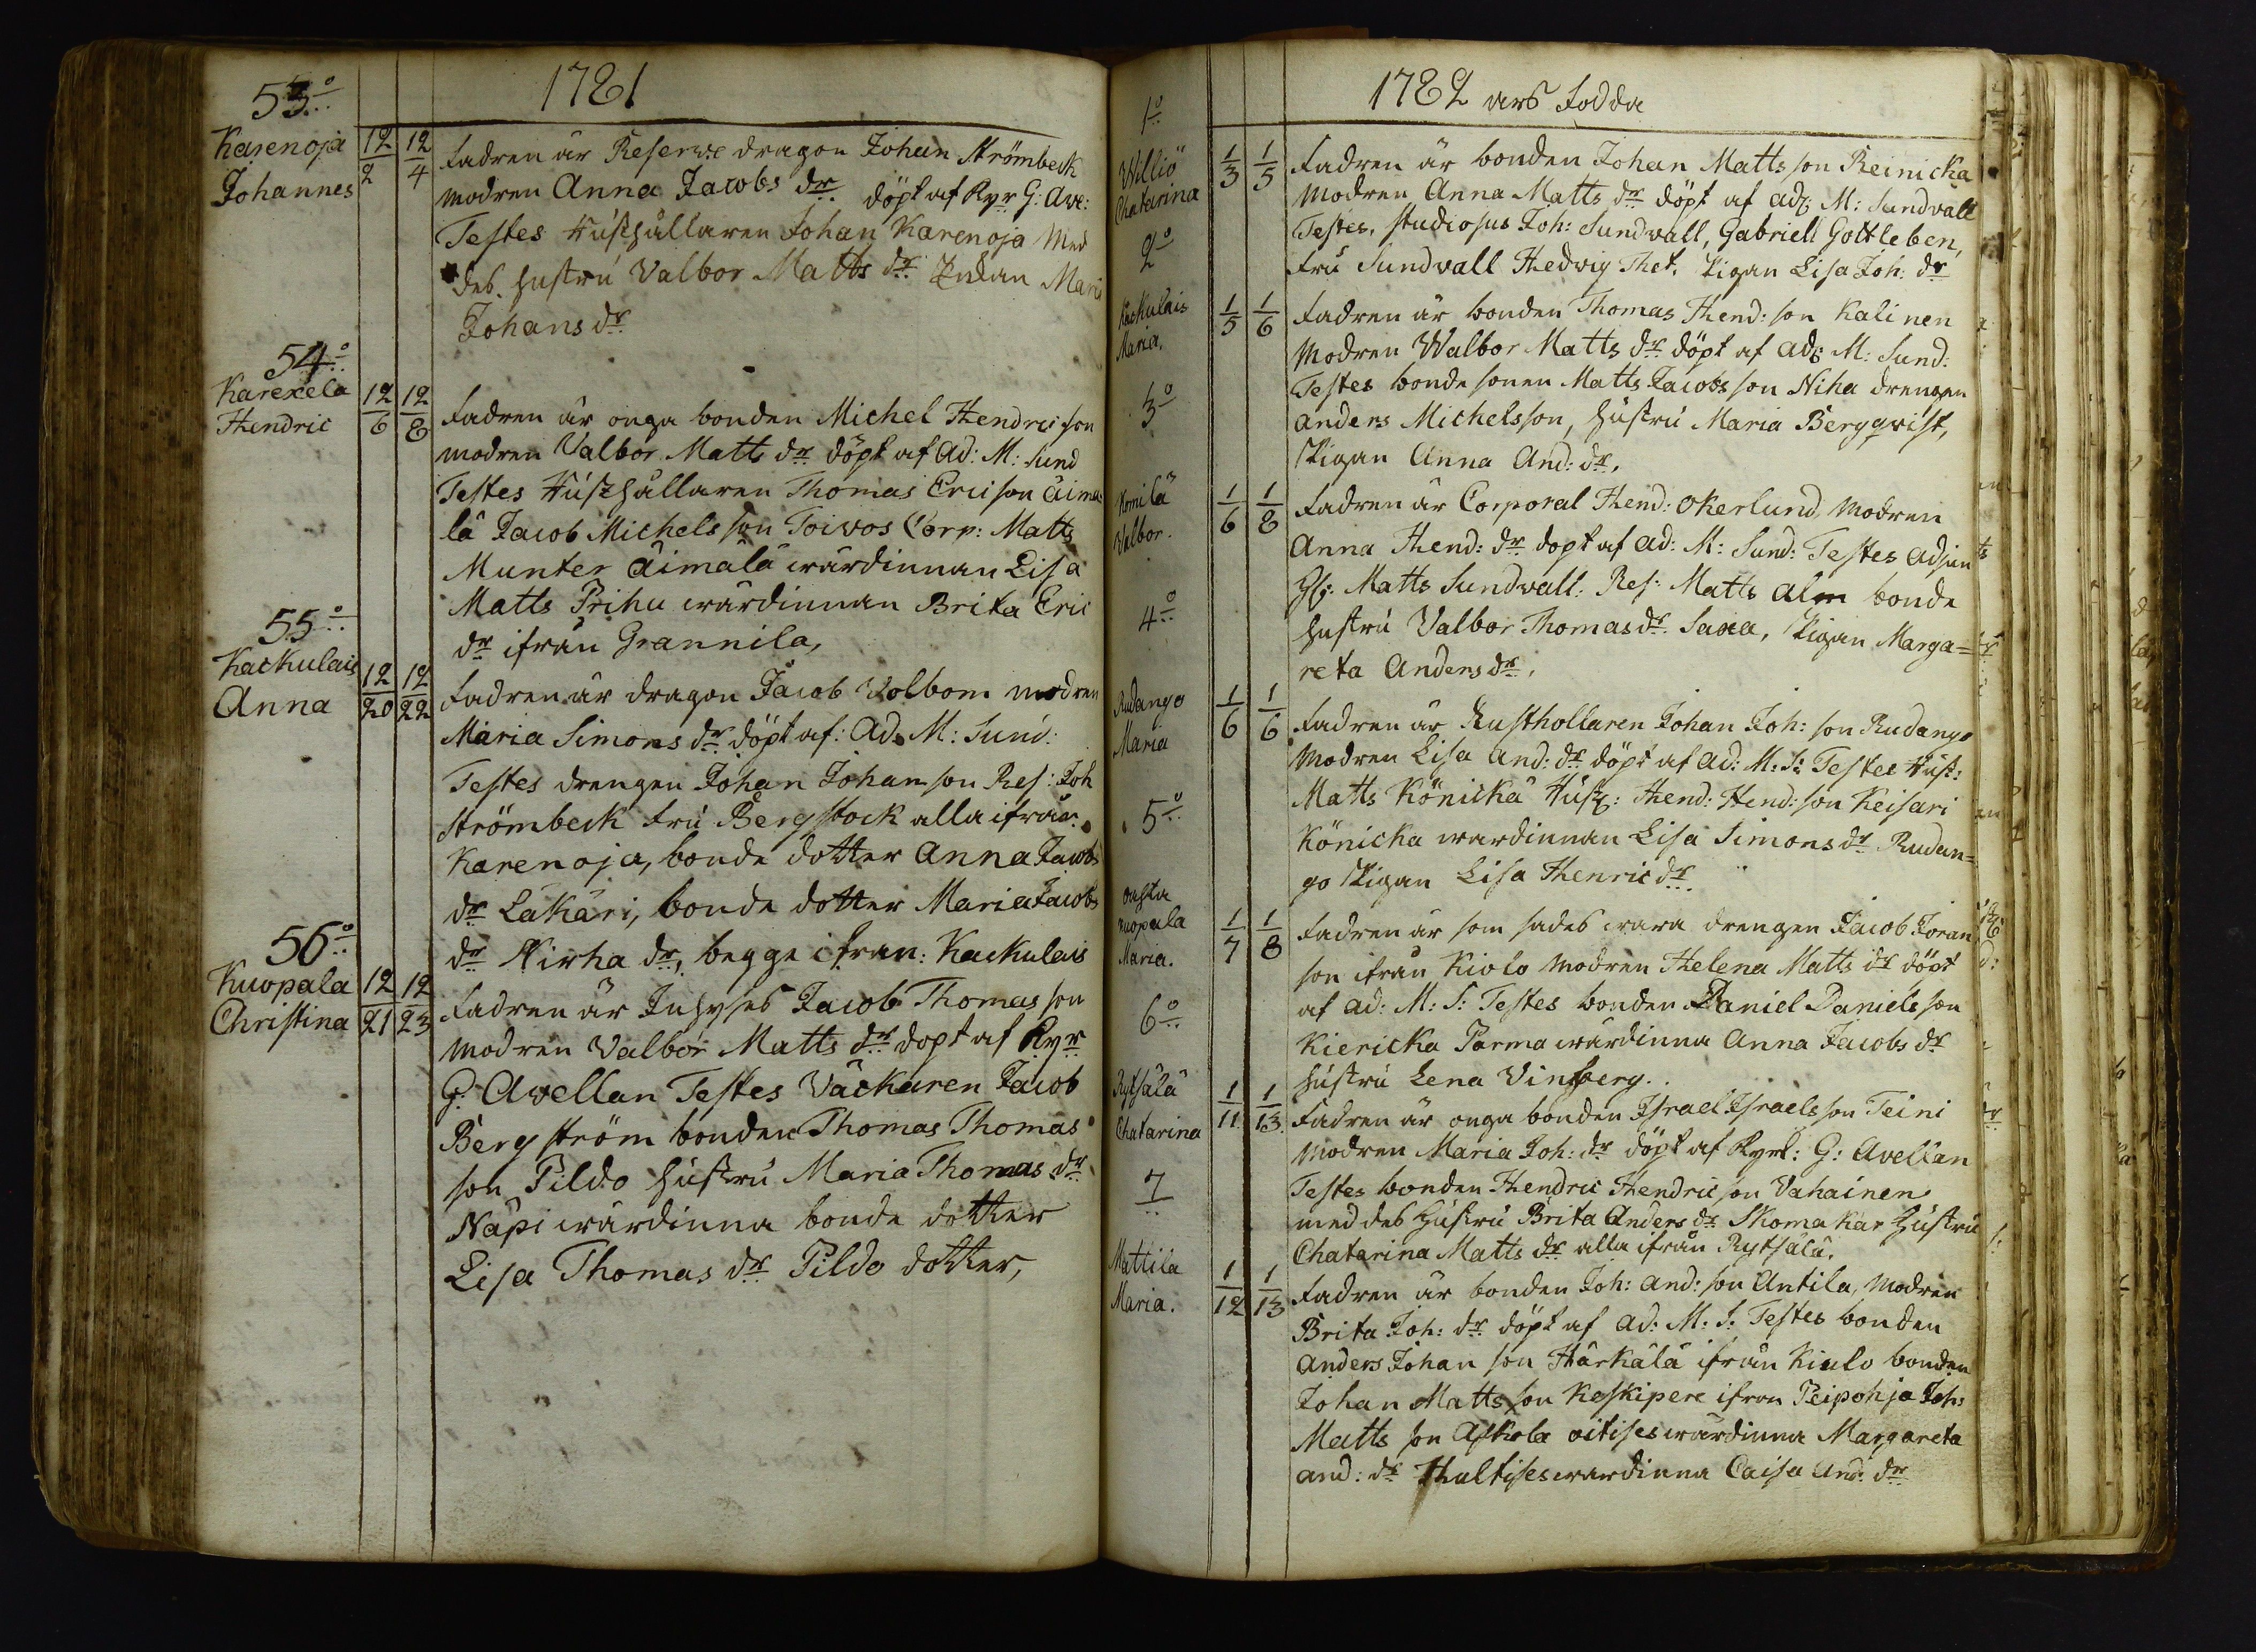 1781
53o
Karenoja 12/2 12/4
Johannes
Fadren är Reserve dragon Johan Strömbeck
modren Anna Jacobs dr döpt af Kyr G: Ave:
Testes Husshållaren Johan Karenoja med
des hustru Valbor Matts dr Enkan Mari
Johans dr
54o
Karexela 12/6 12/8
Hendric
Fadren är onga bonden Michel Hendricson
modren Valbor Matts dr döpt af Ad: M: Sund
Testes Husshållaren Thomas Ericson äima
lä Jacob Michelsson Toivos Corp: Matts
Munter äimälä wärdinnan Lisa
Matts Prihu wärdinnan Brita Eric
dr ifrån Grannila,
55o
Kackulais 12/20 12/22
Anna
Fadren är dragon Jacob Wolbom modren
Maria Simons dr döpt af: Ad. M: Sund:
Testes drengen Johan Johanson Res: Joh
Strömbeck fru Bergstock alla ifrån
Karenoja, bonde dotter Anna Jacobs
dr Läkäri, bonde dotter Maria Jacobs
dr Nirha dr, begge ifran: Kackulais
56o
Kuopala 12/21 12/23
Christina
Fadren är Inhyses Jacob Thomas son
modren Valbor Matts dr dopt af Kyr
G: Avellan Testes Väckaren Jacob
Bergström bonden Thomas Thomas
son Pildo hustru Maria Thomas dr
Näpi wärdinna bonde dotter
Lisa Thomas dr Pildo dotter,
1782 ars Fodda
1o
Williö 1/3 1/5
Chatarina
Fadren är bonden Johan Mattsson Reinicka
Modren Anna Matts dr döpt af adj M: Sundvall
Testes. studiosus Joh: Sundwall, Gabriell Gottleben,
fru Sundvall Hedwig Thet. Pigan Lisa Joh: dr
2o
Kackulais 1/5 1/6
Maria.
Fadren är bonden Thomas Hend: son Kalinen
Modren Walbor Matts dr döpt af adj M: Sund:
Testes bonde sonen Matts Jacobsson Niha drengen
anders Michelsson, hustru Maria Bergqvist,
Pigan Anna And: dr,
3o
Komilä 1/6 1/8
Valbor.
Fadren är Corporal Hend: Okerlund Modren
Anna Hend: dr dopt af ad: M: Sund: Testes adjun
Matts Sundvall: Res: Matts alm bonde
hustru Valbor Thomas dr Saxa, Pigan Marga=
reta Anders dr.
4o
Rudango 1/6 1/6
Maria
Fadren är Rusthollaren Johan Joh: son Rudango
Modren Lisa And: dr döpt af ad: M: S: Testes Hus:
Matts Könickä Hus: Hend: Hend: son Keisari
Könicka wardinnan Lisa Simons dr Rudan=
go Pigan Lisa Henric dr
5o
onsta
Kuopala 1/7 1/8
Maria.
Fadren är som sades wara drengen Jacob Joran
son ifrån Kiolo modren Helena Matts dr döpt
af ad: M: S: Testes bonden Daniel Danielsson
Kiericka Parma wärdinna Anna Jacobs dr
hustru Lena Vinberg.
6o
Rytsälä 1/11 1/13
Chatarina
Fadren är onga bonden Israel Israelsson Teini
modren Maria Joh: dr döpt af Kyrk: G: Avellan
Testes bonden Hendric Hendricson Vahainen
med des hustru Brita Anders dr Skomakar hustru
Chatarina Matts dr alla ifrån Rytsälä.
7
Mattila 1/12 1/13
Maria.
Fadren är bonden Joh: and: son Antila, modren
Brita Joh: dr döpt af ad: M: S: Testes bonden
Anders Johan son Härkälä ifrån Kiulo bonden
Johan Matts son Koskipere ifron Peipohja Joh:
Matts son Askola oitises wärdinna Margareta
and: dr Hultises wärdinna Caisa And: dr